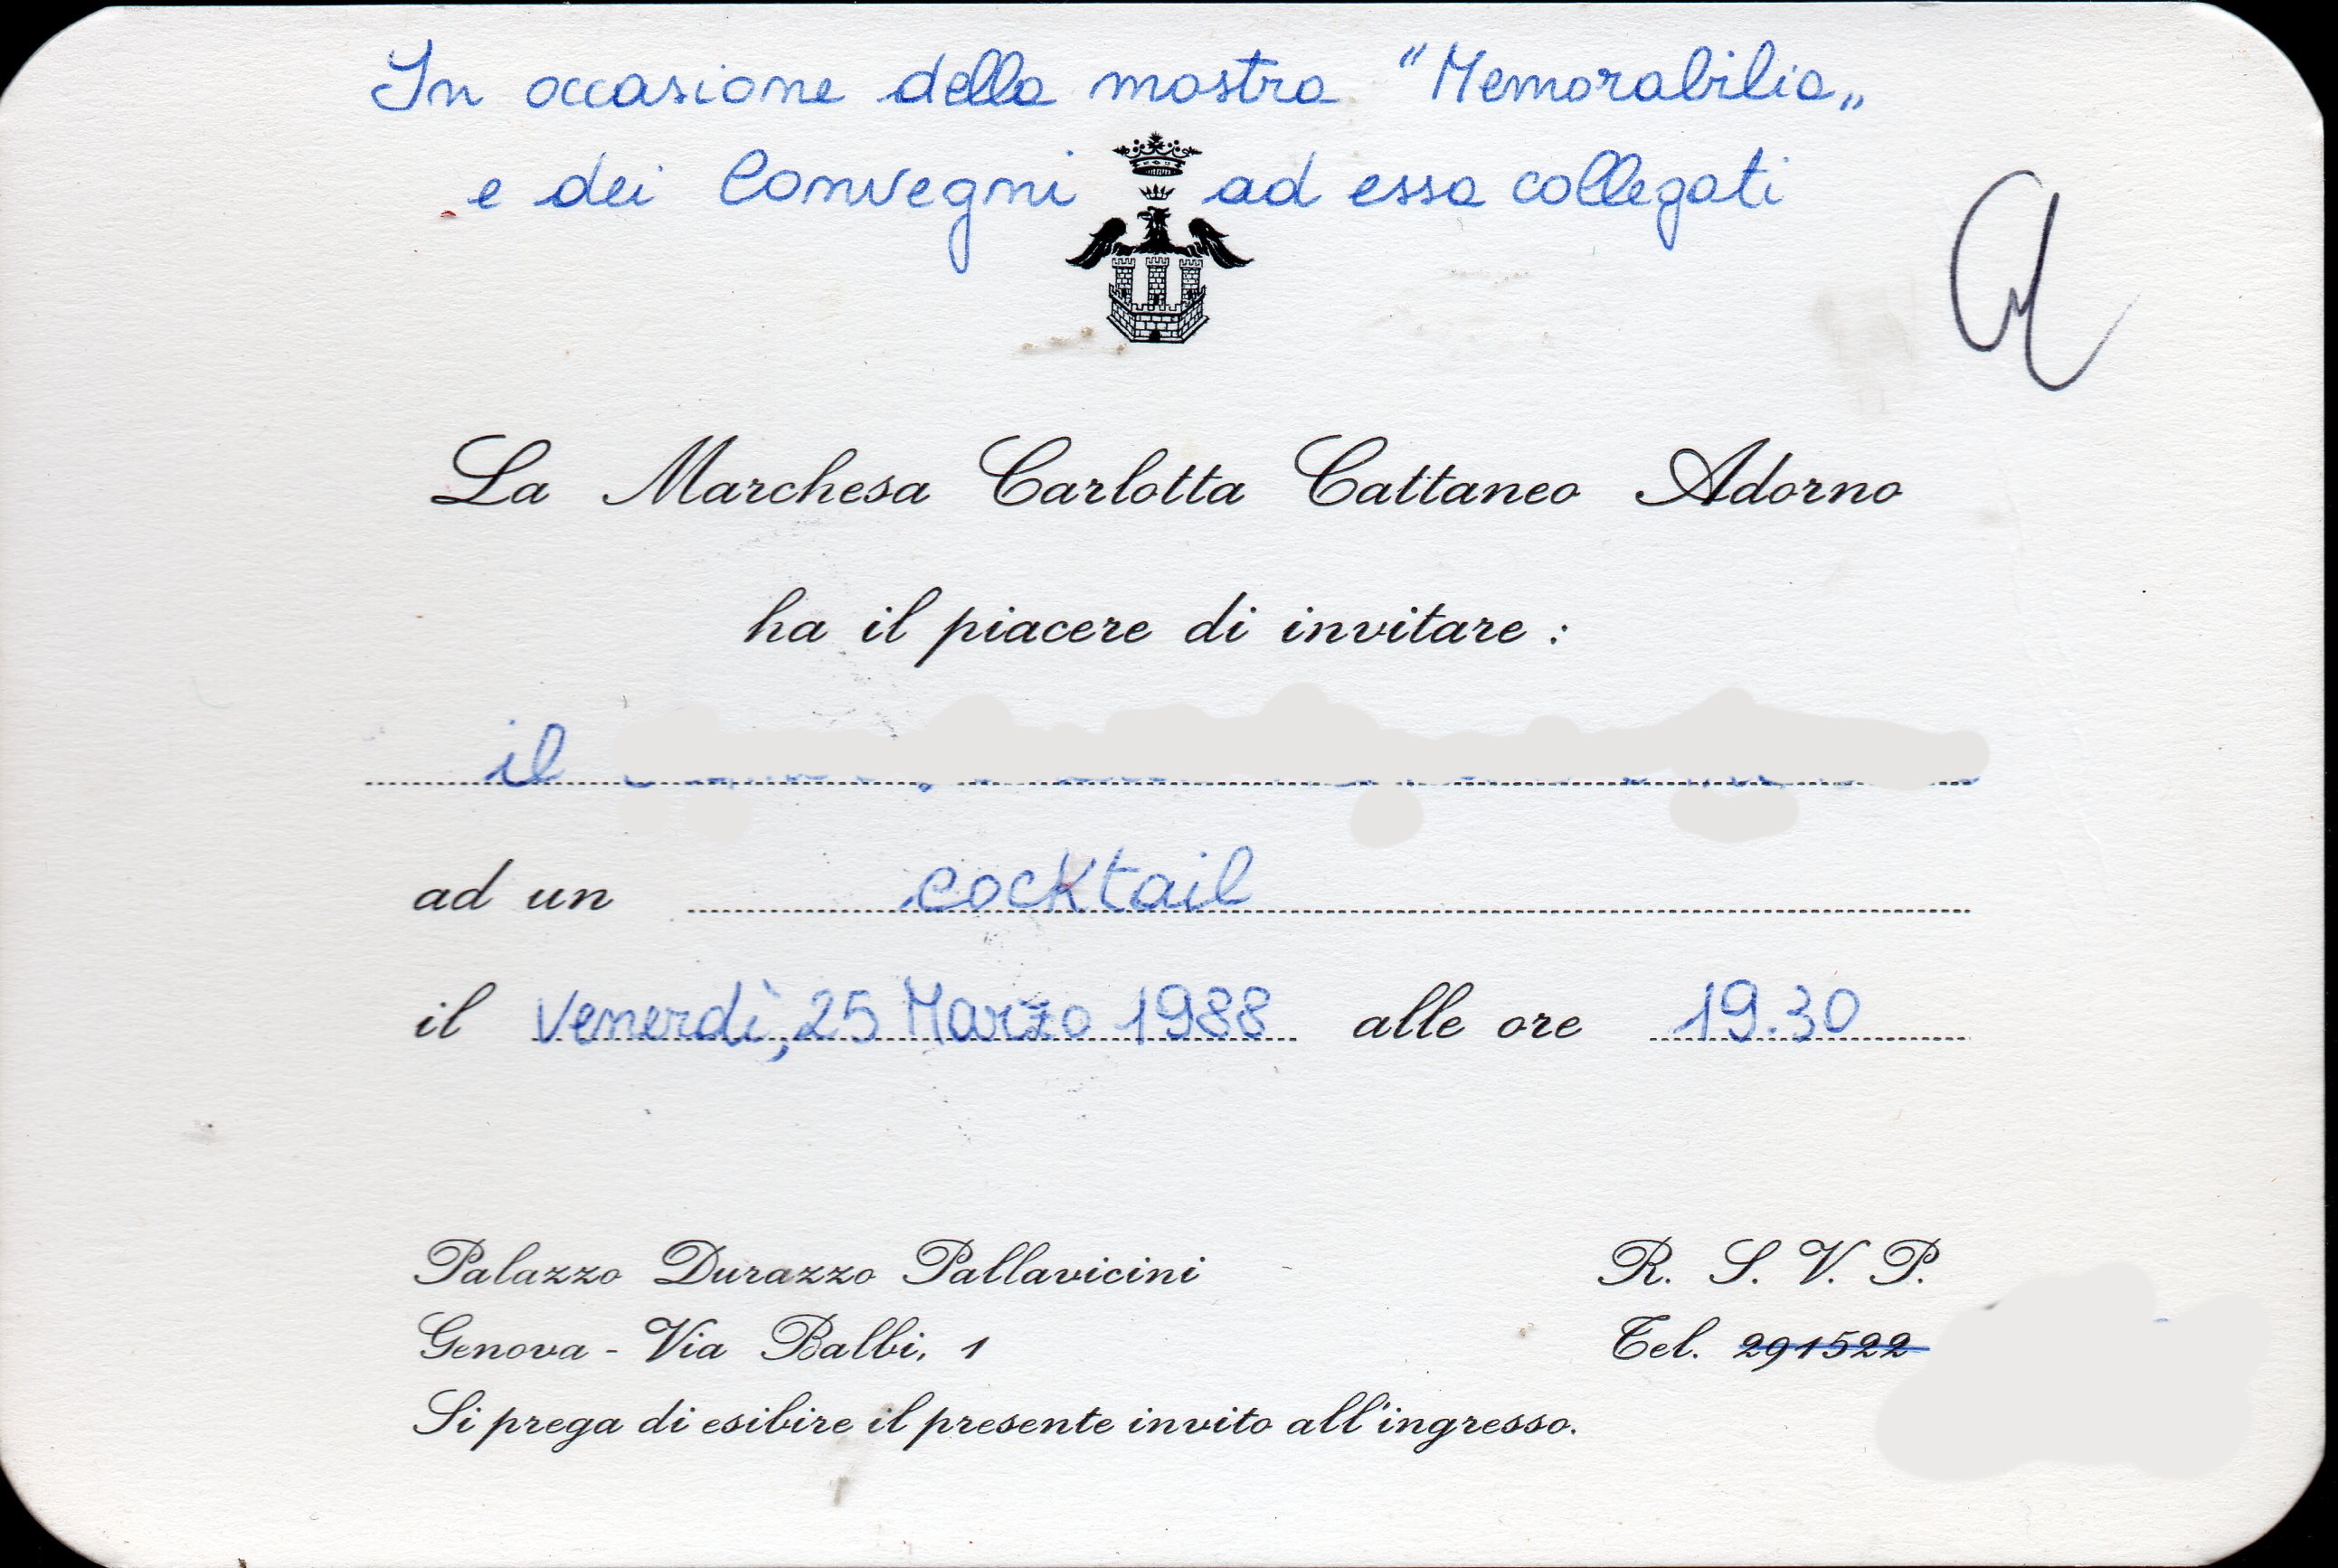 In occasione della mostra "Memorabilia„
e dei Convegni ad essa collegati
La Marchesa Carlotta Cattaneo Adorno
ha il piacere di invitare :
il
ad un cocktail
il Venerdì, 25 Marzo 1988 alle ore 19.30
Palazzo Durazzo Pallavicini
Genova - Via Balbi, 1
Si prega di esibire il presente invito all'ingresso.
R. S. V. P.
Tel. 291522